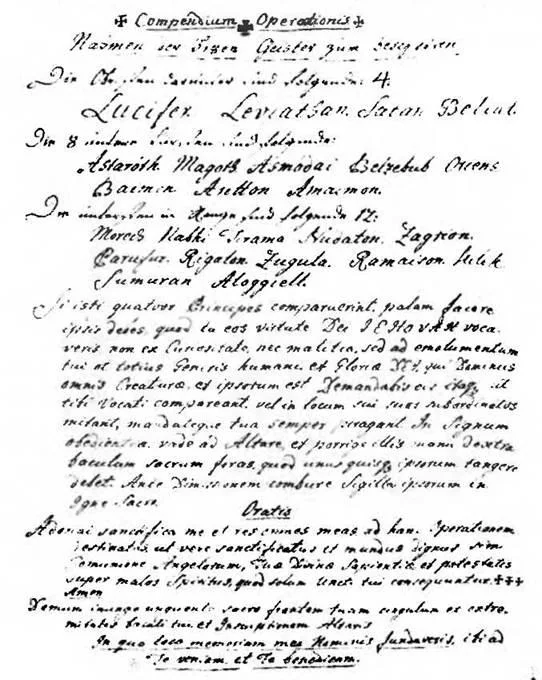 ✠ Compendium ✠ Operationis ✠
Nahmen der Geister zum
Die sind folgende: 4.
Lucifer. Leviathan. Satan. Belial.
Die 8 sind folgende:
Astaroth. Magoth. Asmodai Belzebub Oriens
Paimon Ariton Amaimon.
Die in sind folgende 12:
Morech Nabhi Nudaton. Zagrion.
Parusur. Rigolon. Zugula. Ramaison. Hilik
Sumuran Aloggiell.
Si isti quatuor Principes comparuerint, palam facere
ipsis debes, quod tu eos virtute Dei JEHOVAH voca
veris, non ex Curiositate, nec malitia, sed ad emolumentum
tui et totius Generis humani, et Gloriæ DEI, qui Dominus
omnis Creaturæ, et ipsorum est Demandabis eis itaq, ut
tibi Vocati compareant, vel in locum sui suos subordinatos
mitant, mandataque tua semper peragant. In Signum
obedientiæ vade ad Altare, et porrige illis manu dextra
baculum sacrum foras, quod unus quisq, ipsorum tangere
debet. Ante Dimissionem combure Sigilla ipsorum in
Igne Sacro.
Oratio
Adonai sanctifica me et res omnes meas ad hanc Operationem
destinatas, ut vere sanctificatus et mundus dignus sim
Comunione Angelorum, Tuæ Divinæ Sapientiæ et potestatis
super malos Spiritus, quod solum Uncti tui consequuntur. ✠✠✠
Amen
Demum inunge unguento sacro frontem tuam cingulum et extre-
mitates baculi tui et Inscriptionem Altaris
In quo loco memoriam mei Nominis fundaveris, ibi ad
Te veniam et Te benedicam.